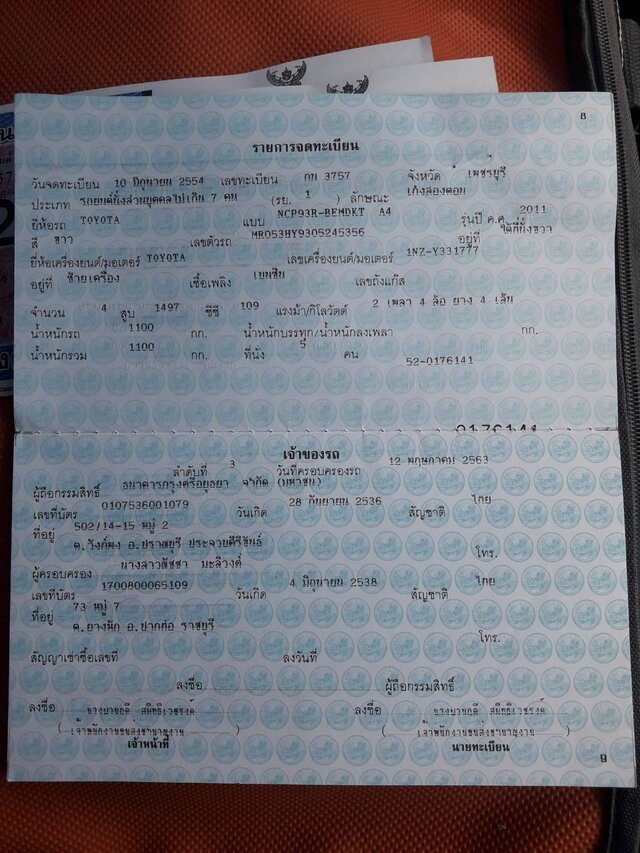 8
รายการจดทะเบียน
วันจดทะเบียน 10 มิถุนายน 2554 เลขทะเบียน กน 3757 จังหวัด เพชรบุรี
ประเภท รถยนต์นั่งส่วนบุคคลไม่เกิน 7 คน (รย. 1 ) ลักษณะ เก๋งสองตอน
ยี่ห้อรถ TOYOTA แบบ NCP93R-BEMDKT A4 รุ่นปี ค.ศ. 2011
สี ขาว เลขตัวรถ MR053HY9305245356 อยู่ที่ ใต้ที่นั่งขวา
ยี่ห้อเครื่องยนต์/มอเตอร์ TOYOTA เลขเครื่องยนต์/มอเตอร์ 1NZ-Y331777
อยู่ที่ ซ้ายเครื่อง เชื้อเพลิง เบนซิน เลขถังแก๊ส
จำนวน 4 สูบ 1497 ซีซี 109 แรงม้า/กิโลวัตต์ 2 เพลา 4 ล้อ ยาง 4 เส้น
น้ำหนักรถ 1100 กก. น้ำหนักบรรทุก/น้ำหนักลงเพลา กก.
น้ำหนักรวม 1100 กก. ที่นั่ง 5 คน 52-0176141
0176141
เจ้าของรถ
ลำดับที่ 3 วันที่ครอบครองรถ 12 พฤษภาคม 2563
ผู้ถือกรรมสิทธิ์ ธนาคารกรุงศรีอยุธยา จำกัด (มหาชน)
เลขที่บัตร 0107536001079 วันเกิด 28 กันยายน 2536 สัญชาติ ไทย
ที่อยู่ 502/14-15 หมู่ 2
ต.วังก์พง อ.ปราณบุรี ประจวบคีรีขันธ์ โทร.
ผู้ครอบครอง นางสาวสัชชา มะลิวงค์
เลขที่บัตร 1700800065109 วันเกิด 4 มิถุนายน 2538 สัญชาติ ไทย
ที่อยู่ 73 หมู่ 7
ต.ยางหัก อ.ปากท่อ ราชบุรี โทร.
สัญญาเช่าซื้อเลขที่ ลงวันที่
ลงชื่อ ผู้ถือกรรมสิทธิ์
ลงชื่อ ลงชื่อ
(เจ้าพนักงานขนส่งชำนาญงาน) (เจ้าพนักงานขนส่งชำนาญงาน)
เจ้าหน้าที่ นายทะเบียน
9